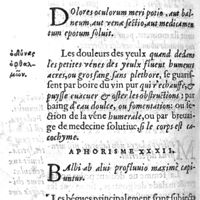 Dolores oculorum meri potio, aut bal-
neum, aut venæ sectio, aut medicamen
tum epotum soluit.
ὀδύνας
ὀφθαλ-
μῶν.
Les douleurs des yeulx quand dedens
les petites venes des yeulx fluent humeurs
acres, ou grossang sans plethore, se guaris-
sent par boire du vin pur qui rechaufe, et
puysse euacuer & oster l'obstructions: par
baing d'eau doulce, ou fomentation: ou se-
ction de la vene humerale, ou par breuua-
ge de medecine solutiue, si le corps est ca-
cochyme.
APHORISME XXXII.
Balbi ab alui profluuio maximè capi-
untur.
Les begues principalement sont subiects